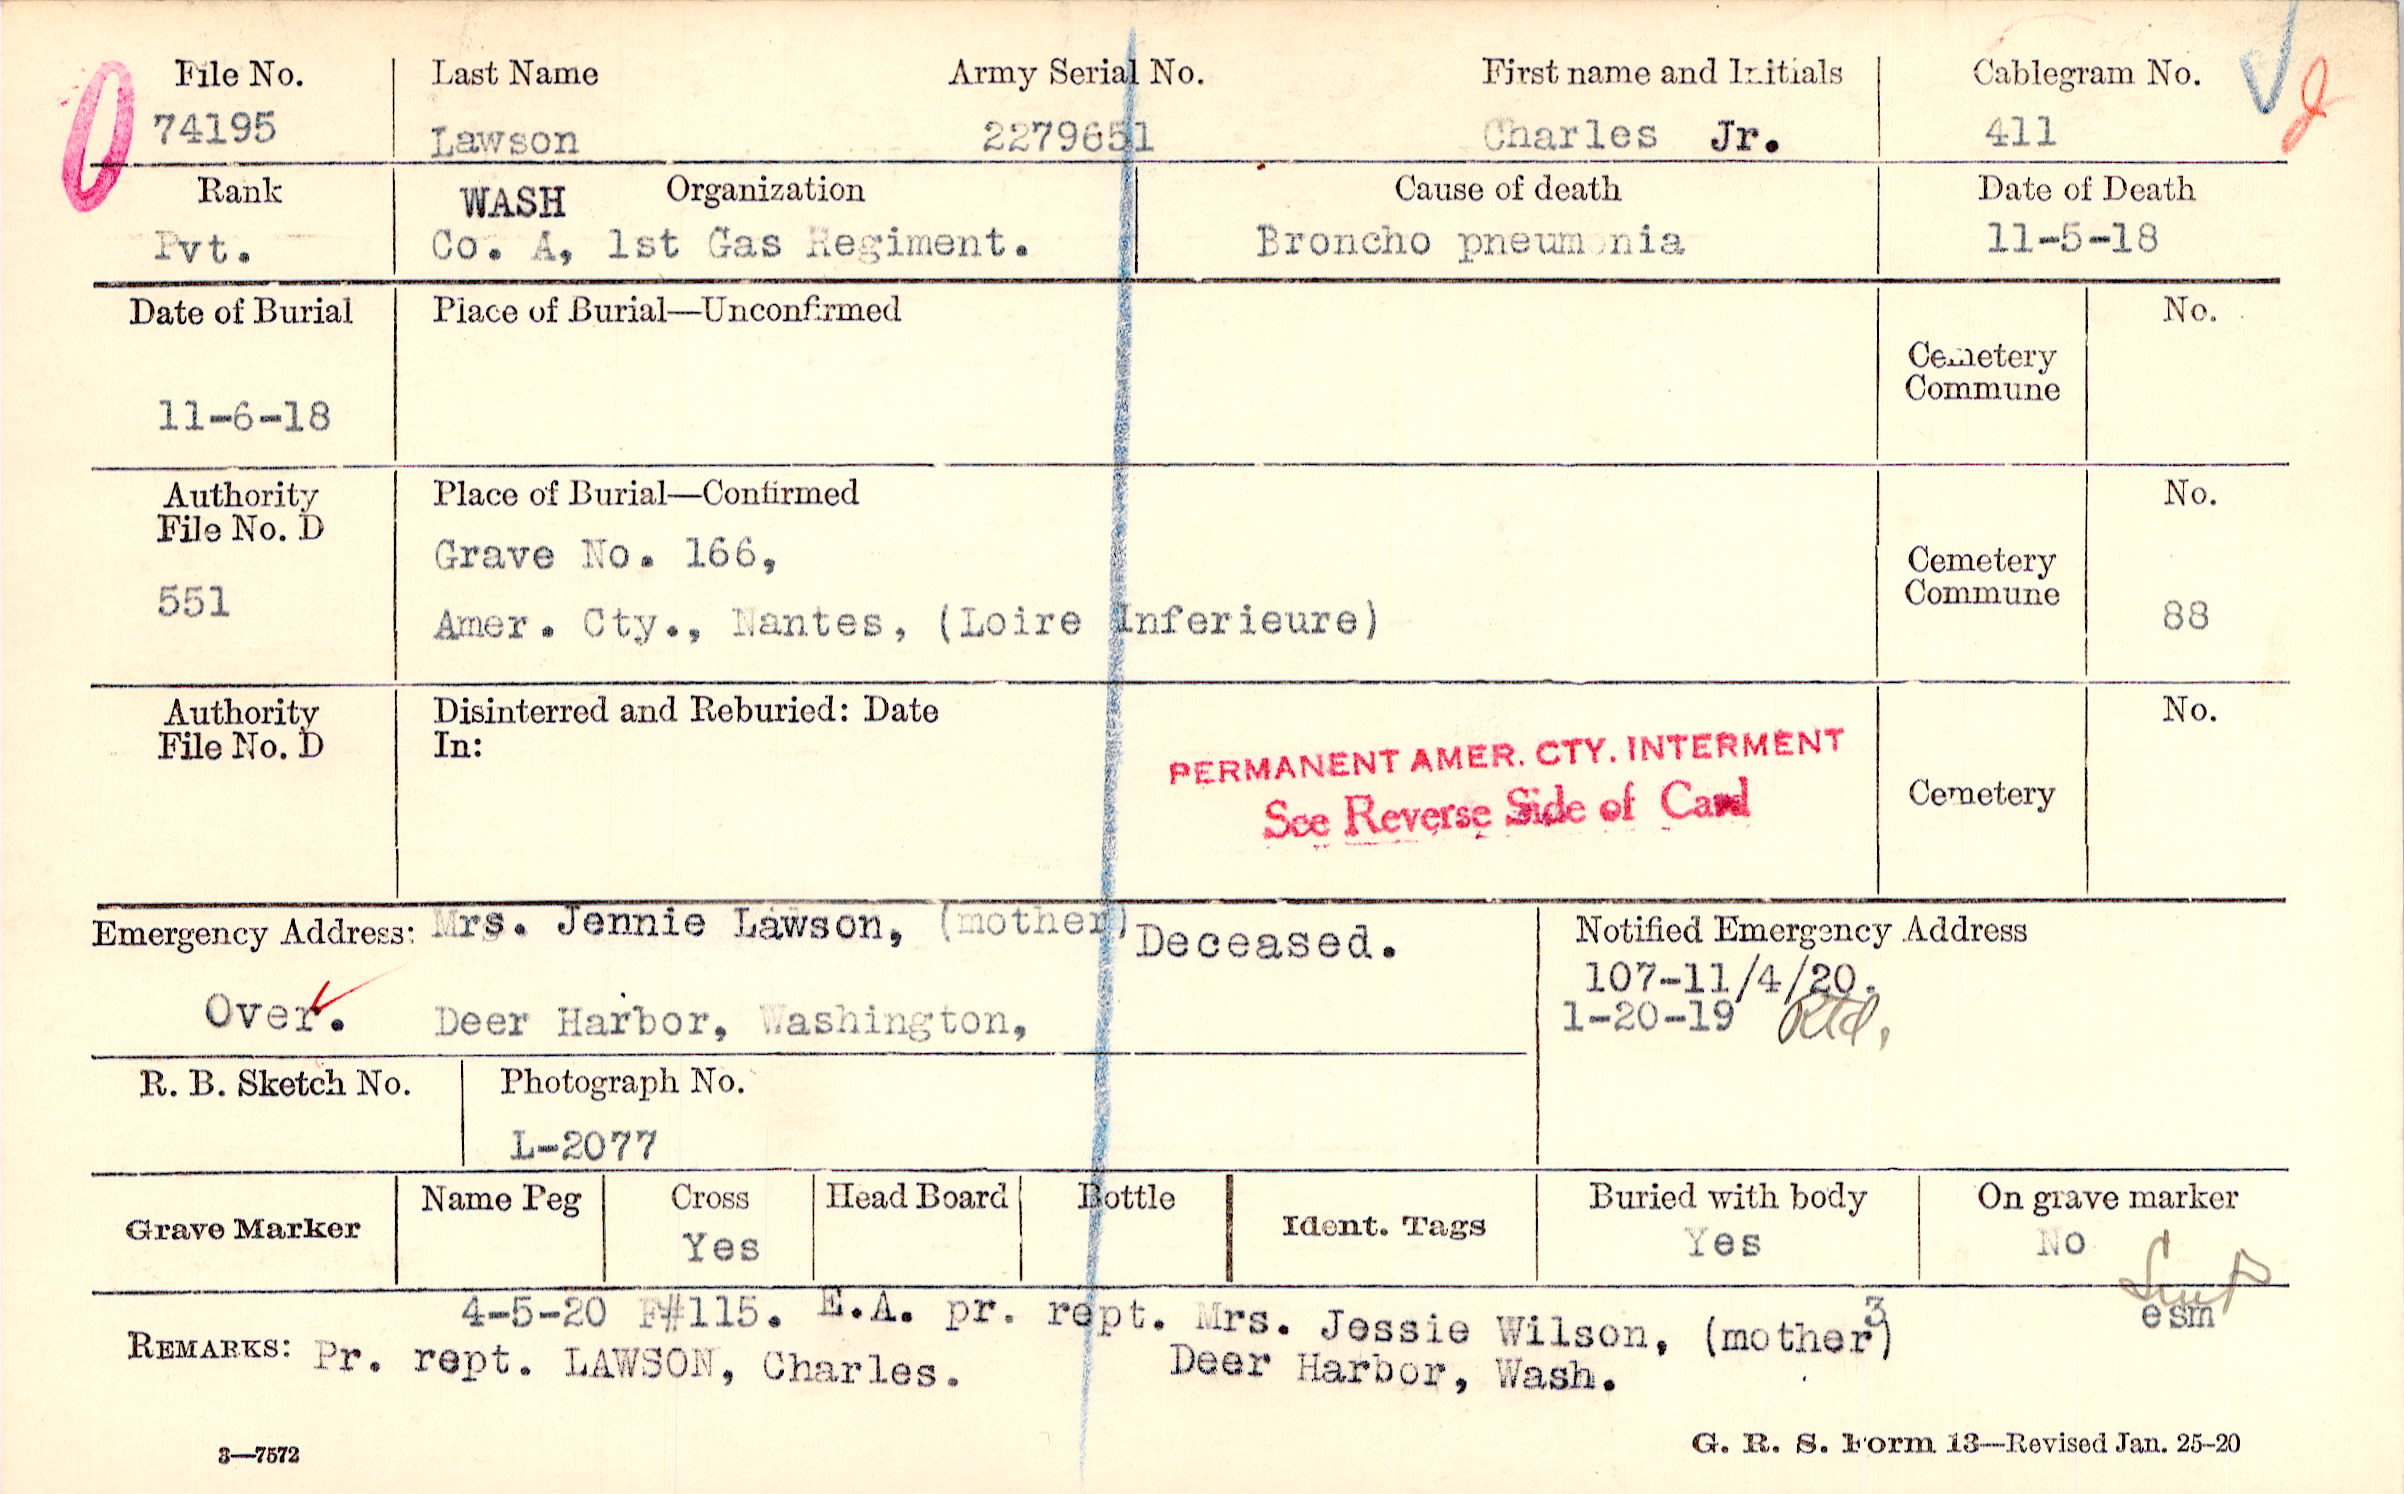 File No. Last Name Army Serial No. First name and Initials Cablegram No.
74195 Lawson 2279651 Charles Jr. 411
Rank WASH Organization Cause of death Date of Death
Pvt. Co. A, 1st Gas Regiment. Broncho pneumonia 11-5-18
Date of Burial Place of Burial—Unconfirmed No.
Cemetery
Commune
11-6-18
Authority Place of Burial—Confirmed No.
File No. D
Grave No. 166, Cemetery
551 Commune
Amer. Cty., Nantes, (Loire Inferieure) 88
Authority Disinterred and Reburied: Date No.
File No. D In:
PERMANENT AMER. CTY. INTERMENT
See Reverse Side of Card
Cemetery
Emergency Address: Mrs. Jennie Lawson, (mother) Deceased. Notified Emergency Address
107-11/4/20.
Over. Deer Harbor, Washington, 1-20-19 Rtd.
R. B. Sketch No. Photograph No.
L-2077
Grave Marker Name Peg Cross Head Board Bottle Ident. Tags Buried with body On grave marker
Yes Yes No
4-5-20 F#115. E.A. pr. rept. Mrs. Jessie Wilson, (mother) 3 esm
REMARKS: Pr. rept. LAWSON, Charles. Deer Harbor, Wash.
3—7572 G. R. S. Form 13—Revised Jan. 25-20